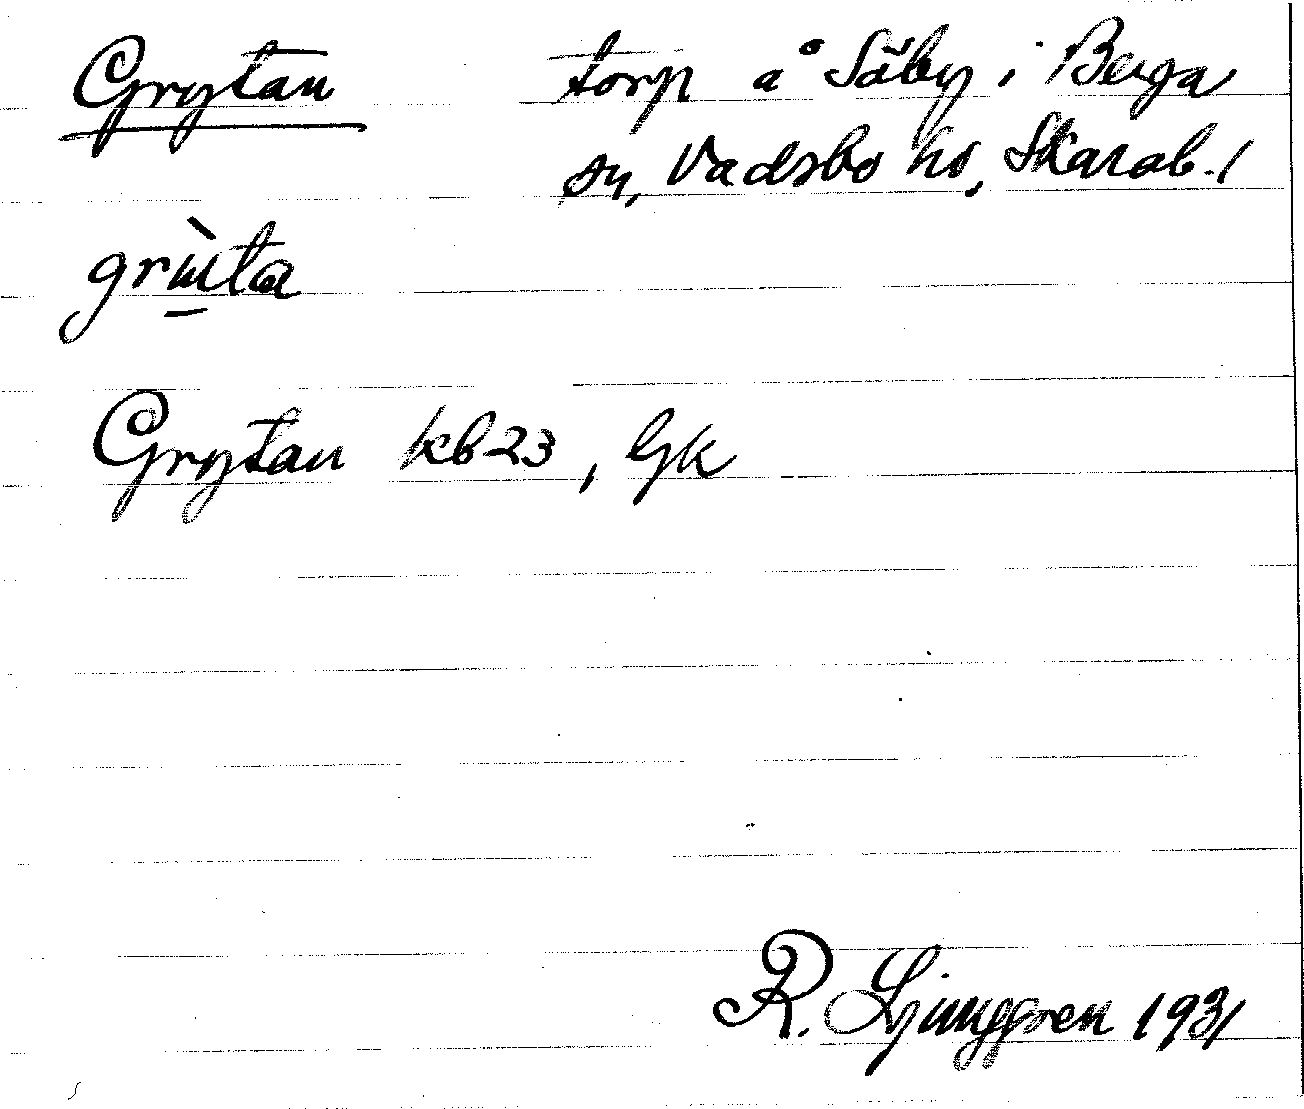 Grytan torp å Säby i Berga
sn, Vadsbo hd, Skarab. l
grùta
Grytan kb 23, Gk
R. Ljunggren 1931